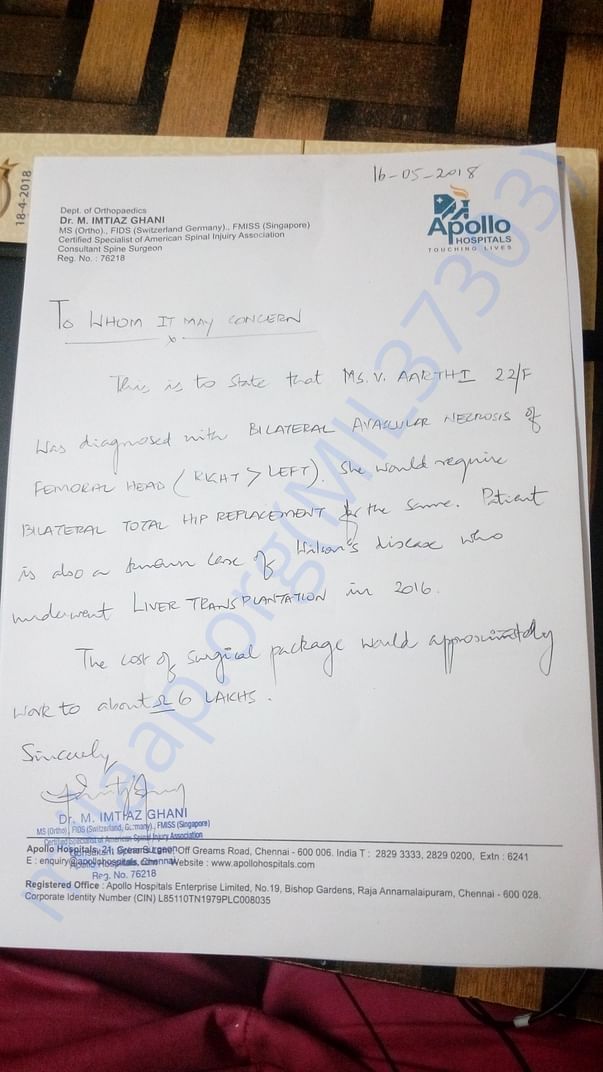 18-4-2018
16-05-2018
Dept. of Orthopaedics
Dr. M. IMTIAZ GHANI
MS (Ortho)., FIDS (Switzerland Germany)., FMISS (Singapore)
Certified Specialist of American Spinal Injuiry Association
Consultant Spine Surgeon
Reg. No. : 76218
Apollo
HOSPITALS
TOUCHING LIVES
TO WHOM IT MAY CONCERN
This is to state that MS. V. AARTHI 22/F
was diagnosed with BILATERAL AVASCULAR NECROSIS of
FEMORAL HEAD (RIGHT > LEFT). She would require
BILATERAL TOTAL HIP REPLACEMENT for the same. Patient
is also a known case of Wilson's disease who
underwent LIVER TRANSPLANTATION in 2016.
The cost of surgical package would approximately
work to about 6 LAKHS.
Sincerely
Dr. M. IMTIAZ GHANI
MS (Ortho), FIDS (Switzerland, Germany)., FMISS (Singapore)
Certified Specialist of American Spinal Injury Association
Apollo Hospitals, 21, Greams Off Greams Road, Chennai - 600 006. India T : 2829 3333, 2829 0200, Extn : 6241
E : enquiry@apollohospitals.com Website : www.apollohospitals.com
Reg. No. 76218
Registered Office : Apollo Hospitals Enterprise Limited, No.19, Bishop Gardens, Raja Annamalaipuram, Chennai - 600 028.
Corporate Identity Number (CIN) L85110TN1979PLC008035
milaap.org(MIL37303)